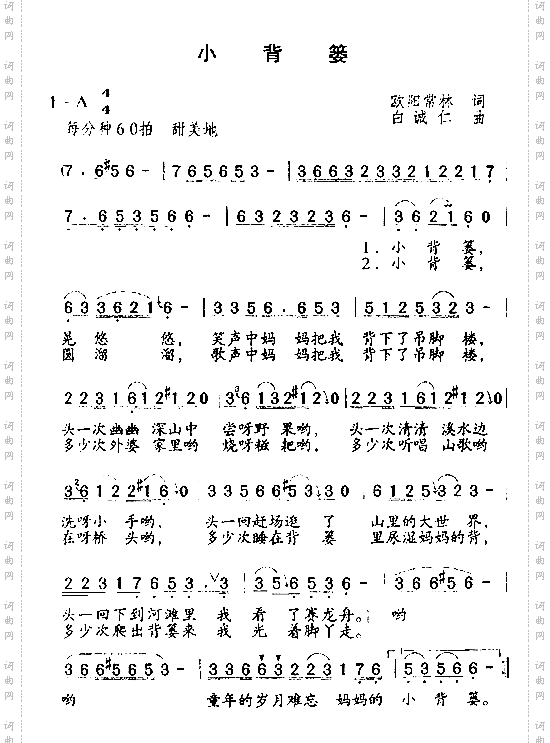 小 背 篓
1=A 4/4
欧阳常林 词
每分钟60拍 甜美地
白诚仁 曲
(7 . 6 #5 6 - | 7 6 5 6 5 3 - | 3 6 6 3 2 3 3 2 1 2 2 1 7 |
7 . 6 5 3 5 6 6 - | 6 3 2 3 2 3 6 - | 3 6 2 1 6 0 |
1. 小 背 篓,
2. 小 背 篓,
6 3 3 6 2 1 6 - | 3 3 5 6 . 6 5 3 | 5 1 2 5 3 2 - |
晃 悠 悠, 笑声中妈 妈把我 背下了吊脚 楼,
圆 溜 溜, 歌声中妈 妈把我 背下了吊脚 楼,
2 2 3 1 6 1 2 #1 2 0 | 3 6 1 3 0 | 2 2 3 1 6 1 2 #1 2 0 |
头一次幽幽 深山中 尝呀野 果哟, 头一次清清 溪水边
多少次外婆 家里哟 烧呀糍 粑哟, 多少次听唱 山歌哟
3 6 1 2 2 #1 6 0 | 2 2 3 5 6 6 #5 3 0 | 3 3 5 3 2 0 |
洗呀小 手哟, 头一回赶场逛 了 山里的大世 界,
在呀桥 头哟, 多少次睡在背 篓 里尿湿妈妈的背,
2 2 3 1 7 6 5 3 . 3 | 3 5 6 5 3 6 - | 3 6 6 #5 6 - |
头一回下到河滩里 我 看 了赛龙舟。 哟
多少次爬出背篓来 我 光 着脚丫走。
3 6 6 #5 6 5 3 - | 6 6 3 6 6 3 2 2 3 1 7 6 | 5 3 5 6 6 - |
哟 童年的岁月难忘 妈妈的 小 背 篓。
词曲网